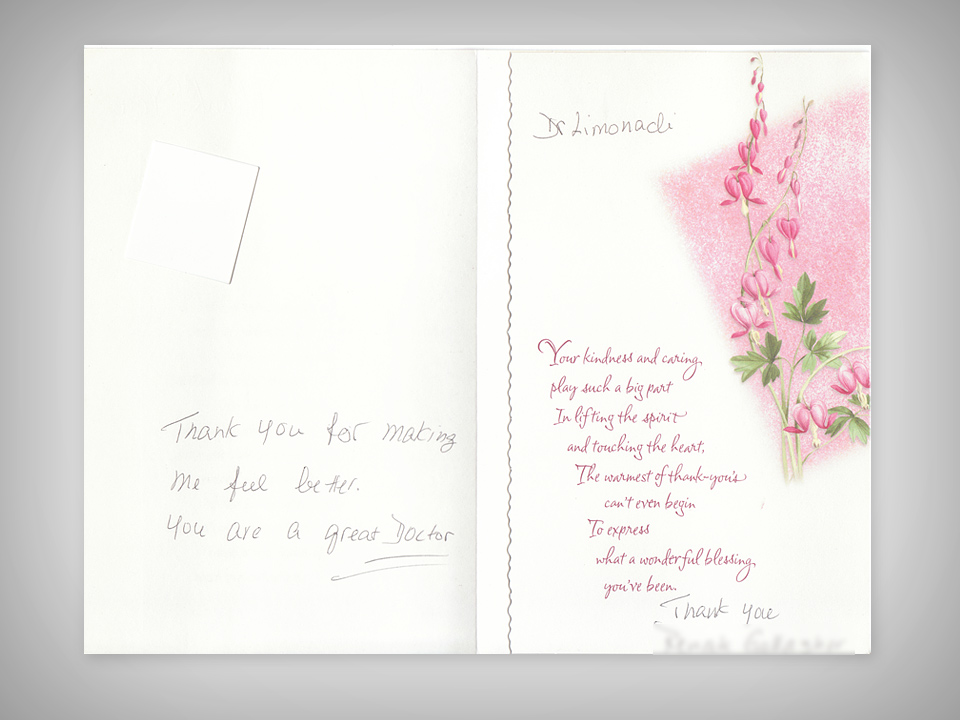 Thank you for making
me feel better.
You are a great Doctor
Dr Limonadi
Your kindness and caring
play such a big part
In lifting the spirit
and touching the heart,
The warmest of thank-you's
can't even begin
To express
what a wonderful blessing
you've been.
Thank you